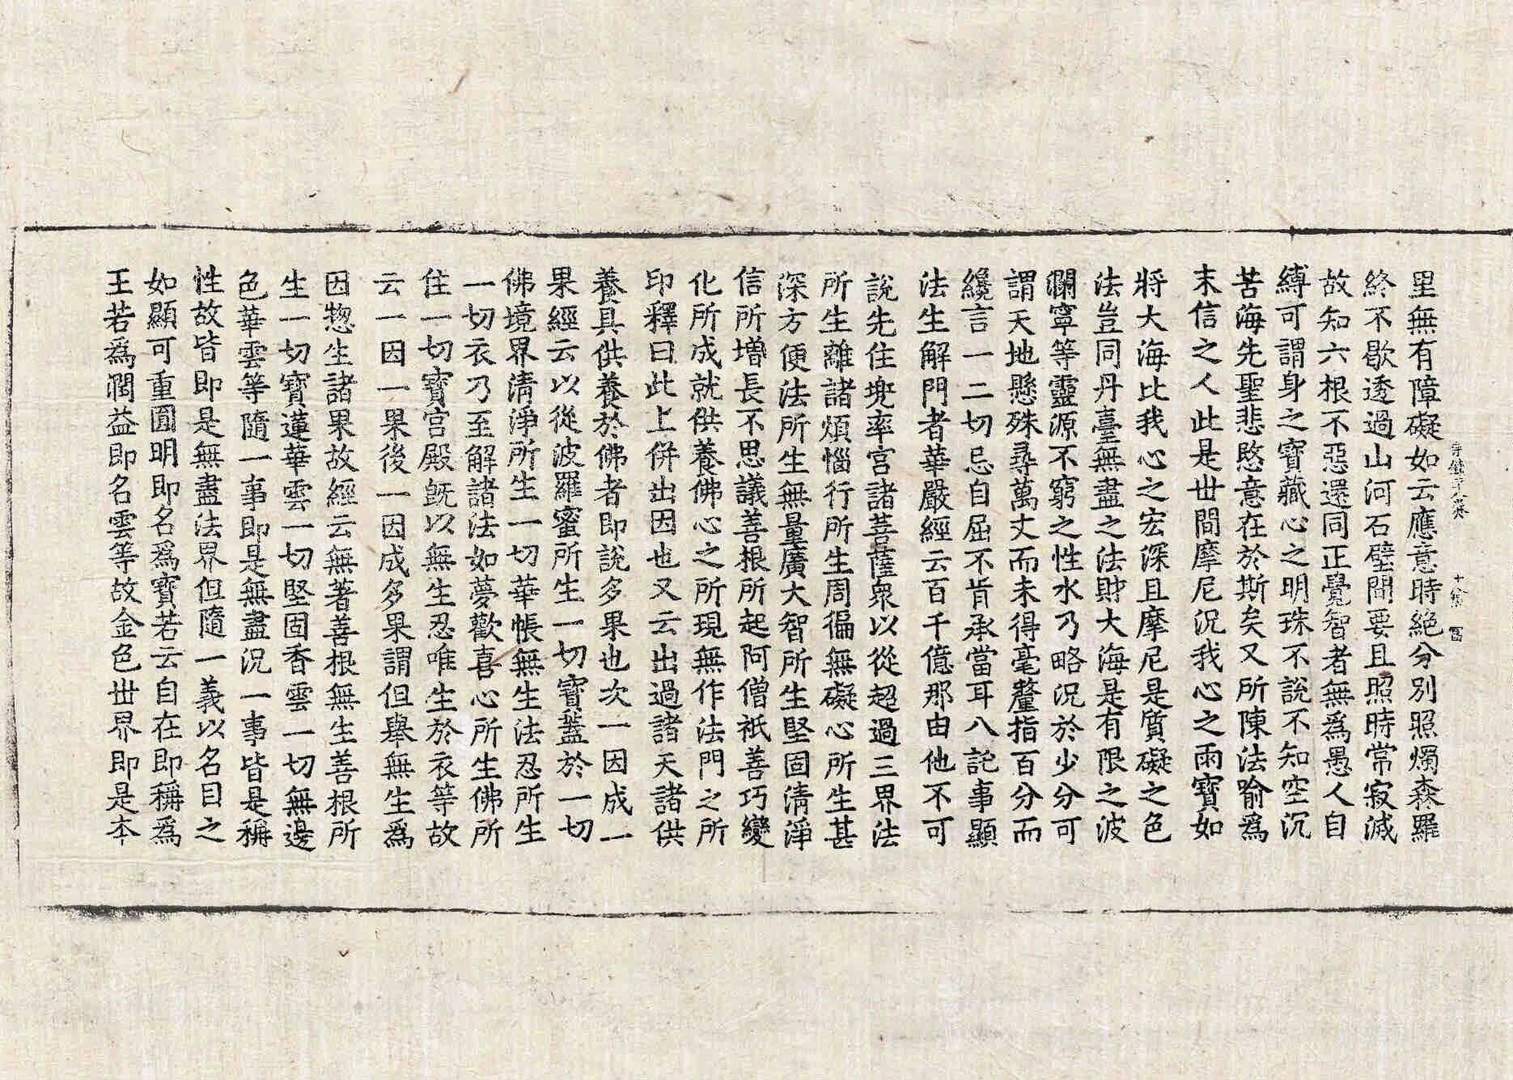 里無有障礙如云應意時絶分別照燭森羅
終不歇透過山河石壁間要且照時常寂滅
故知六根不惡還同正覺智者無爲愚人自
縛可謂身之寶藏心之明珠不說不知空沉
苦海先聖悲愍意在於斯矣又所陳法喻爲
末信之人此是丗間摩尼況我心之雨寶如
將大海比我心之宏深且摩尼是質礙之色
法豈同丹臺無盡之法財大海是有限之波
瀾寧等靈源不窮之性水乃略況於少分可
謂天地懸殊尋萬丈而未得毫釐指百分而
纔言一二切忌自屈不肯承當耳八託事顯
法生解門者華嚴經云百千億那由他不可
說先住兠率宫諸菩薩衆以從超過三界法
所生離諸煩惱行所生周徧無礙心所生甚
深方便法所生無量廣大智所生堅固清淨
信所增長不思議善根所起阿僧祇善巧變
化所成就供養佛心之所現無作法門之所
印釋曰此上併出因也又云出過諸天諸供
養具供養於佛者即說多果也次一因成一
果經云以從波羅蜜所生一切寶蓋於一切
佛境界清淨所生一切華帳無生法忍所生
一切衣乃至解諸法如夢歡喜心所生佛所
住一切寶宫殿旣以無生忍唯生於衣等故
云一因一果後一因成多果謂但舉無生爲
因惣生諸果故經云無著善根無生善根所
生一切寶蓮華雲一切堅固香雲一切無邊
色華雲等隨一事即是無盡況一事皆是稱
性故皆即是無盡法界但隨一義以名目之
如顯可重圓明即名爲寶若云自在即稱爲
王若爲潤益即名雲等故金色丗界即是本